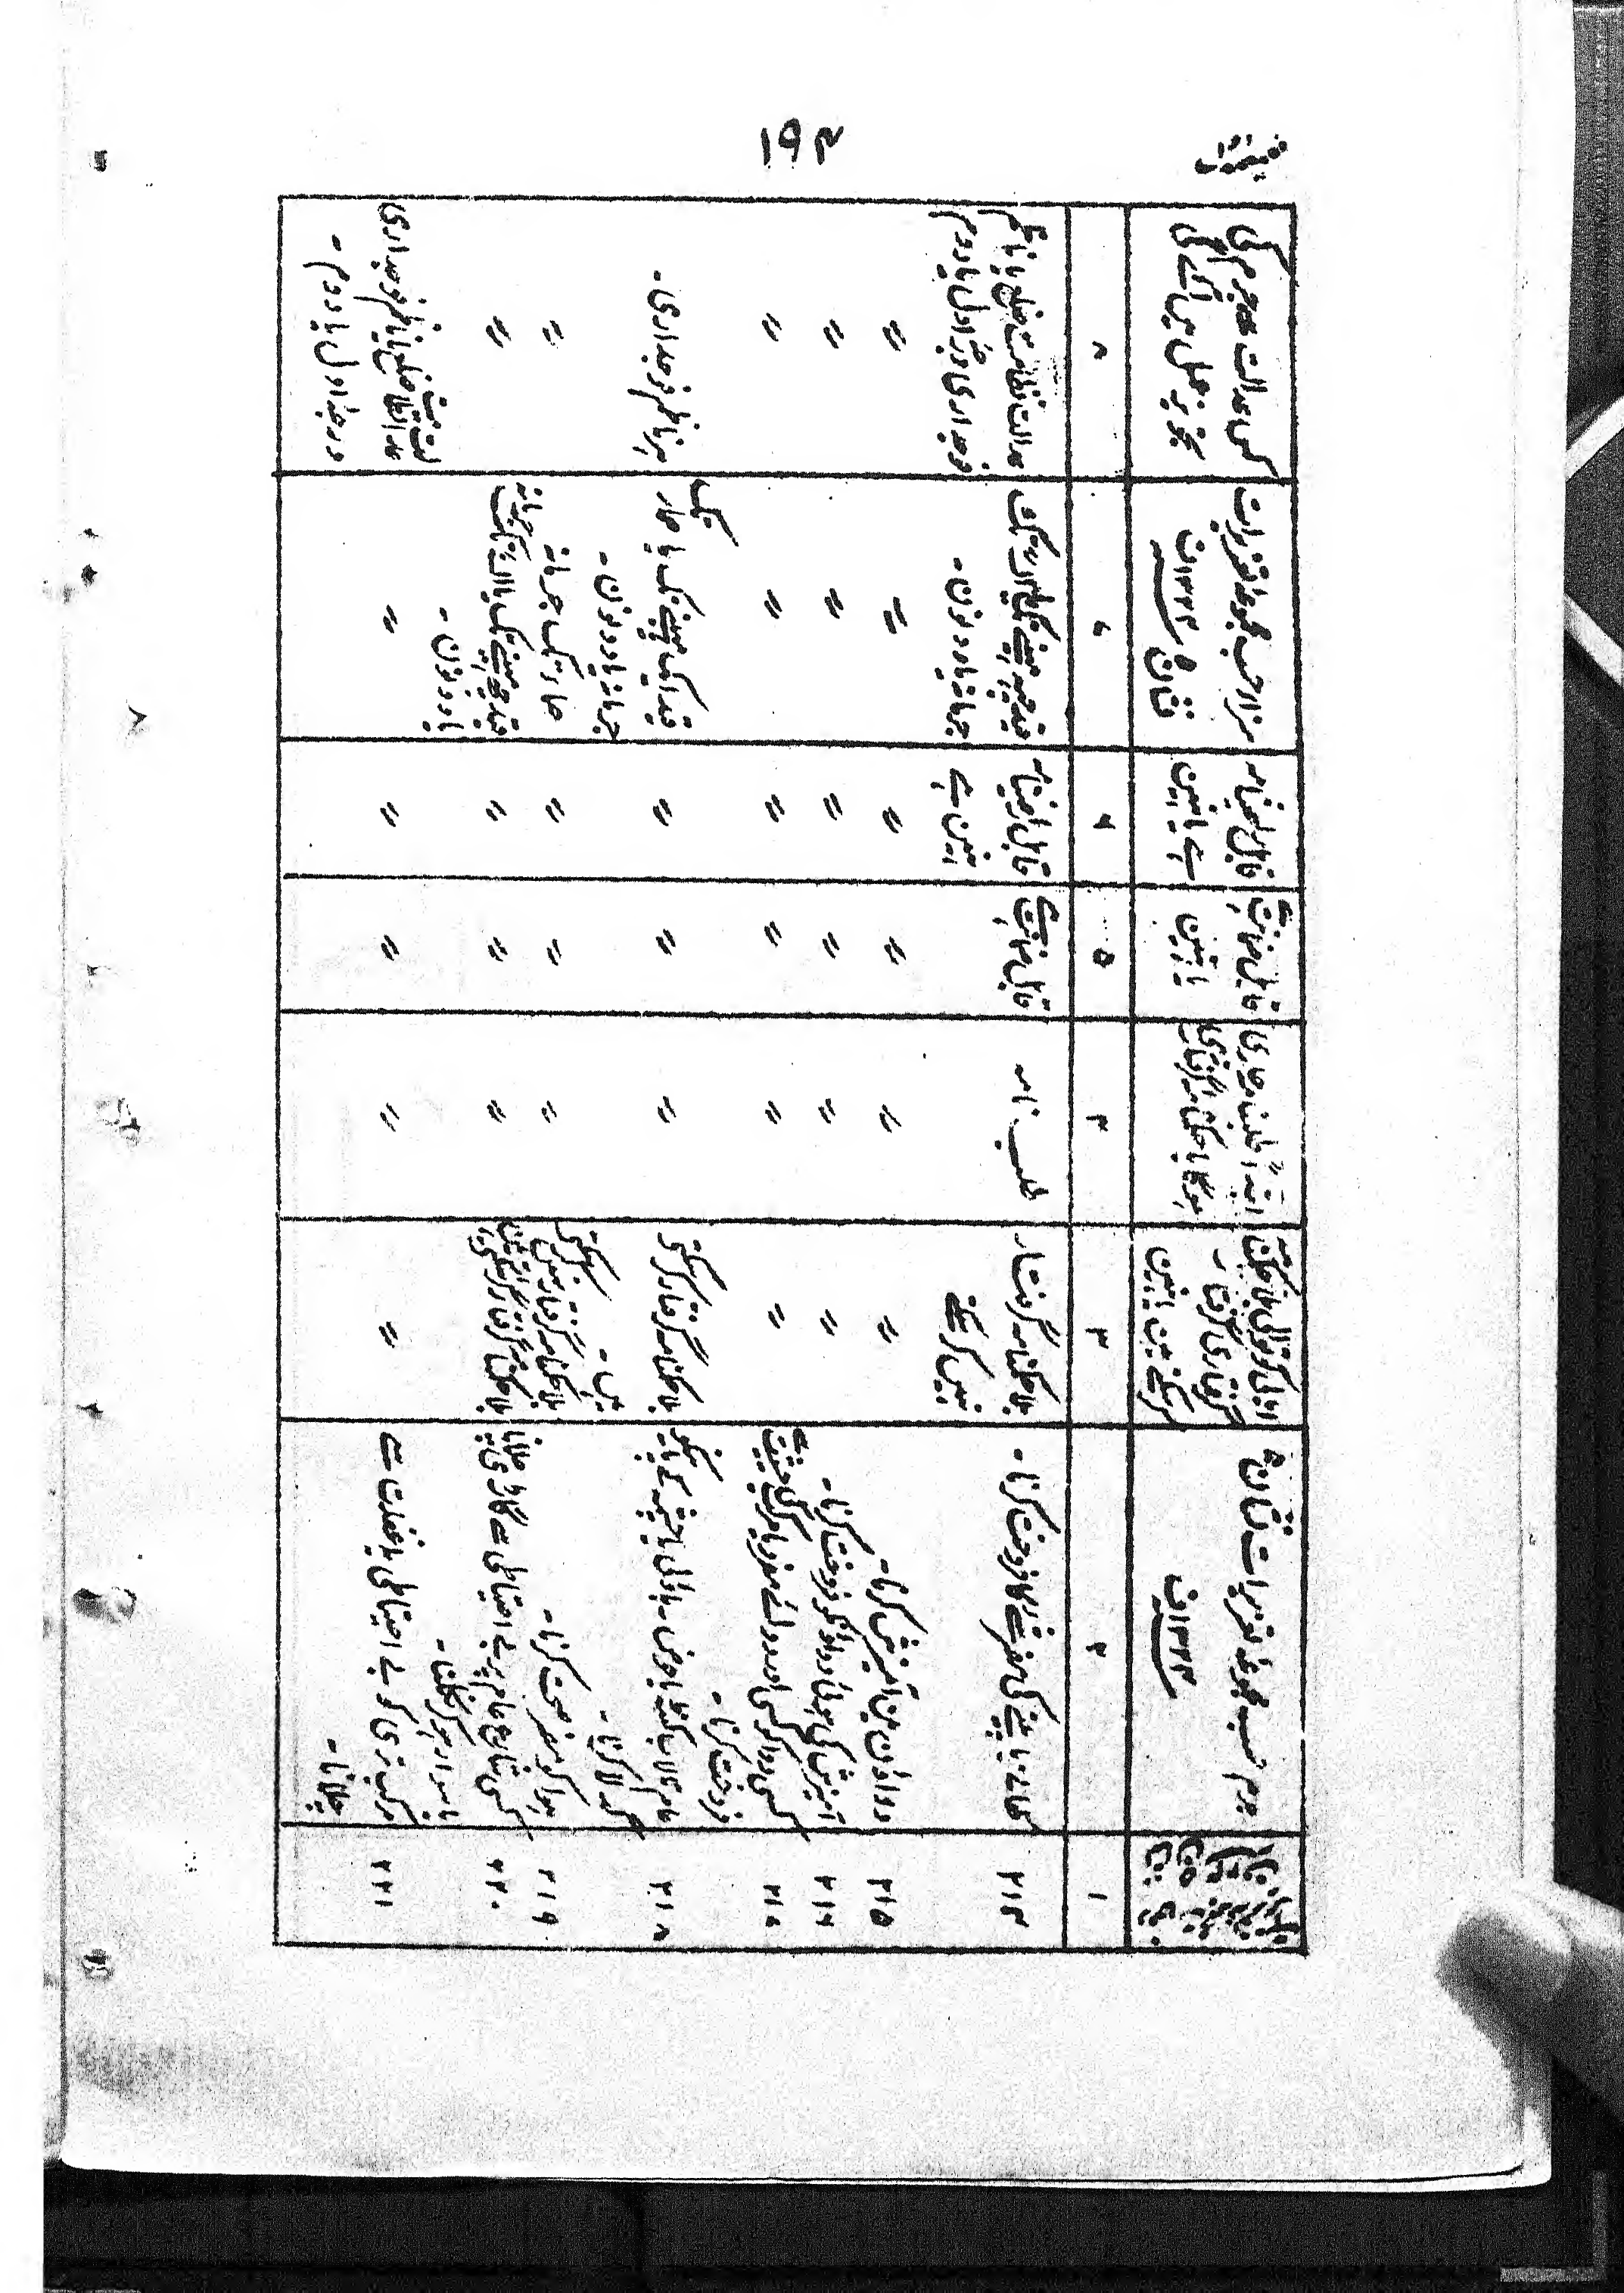 ۱۹۴
جرم حسب مجموعہ تعزیرات نشان ۵
۱۳۲۴ف
اہالی کوتوالی بلا حکمنامہ
گرفتاری گرفتار
کرسکتے ہین یا نہین
ابتداءً طلبنامہ جاری
ہوگا یا حکمنامہ گرفتاری
قابل ضمانت ہے
یا نہین
قابل راضینامہ
ہے یا نہین
سزا حسب مجموعہ تعزیرات
نشان ۵ ۱۳۲۴ف
کس عدالت سے جرم کی
تجویز عمل مین آئے گی
۱
۲
۳
۴
۵
۶
۷
۸
۲۱۴
کھانے یا پینے کی مضر شے کا فروخت کرنا۔
بلا حکمنامہ گرفتار
نہین کرسکتے
طلب نامہ
قابل ضمانت ہے
قابل راضینامہ
نہین ہے
قید چھ مہینے تک یا سو تک
جرمانہ یا دونون۔
عدالت نظامت ضلع یا ناظم
فوجداری درجہ اول یا دوم
۲۱۵
دواؤن مین آمیزش کرنا۔
〃
〃
〃
〃
〃
〃
۲۱۶
آمیزش کی ہوئی دوا کو فروخت کرنا۔
〃
〃
〃
〃
〃
〃
۲۱۷
کسی دوا کو کسی اور دوائے مفرد یا مرکب کی حیثیت سے
فروخت کرنا۔
〃
〃
〃
〃
〃
〃
۲۱۸
عام تالاب کنٹہ یا حوض۔ باؤلی یا چشمہ کے پانی کو
گدلا کرنا۔
بلا حکمنامہ گرفتار کرسکتے
ہین۔
〃
〃
〃
قید ایک مہینے تک یا صار تک
جرمانہ یا دونون۔
ہر ناظم فوجداری۔
۲۱۹
ہوا کو مضر صحت کرنا۔
بلا حکمنامہ گرفتار نہین کرسکتے
〃
〃
〃
صار تک جرمانہ
〃
۲۲۰
کسی شارع عام پر بے احتیاطی سے گاڑی چلانا
یا سوار ہوکر نکلنا۔
بلا حکمنامہ گرفتار کرسکتے ہین
〃
〃
〃
قید چھ مہینے تک یا تک جرمانہ
یا دونون۔
〃
۲۲۱
مرکب تری کو بے احتیاطی یا غفلت سے
چلانا۔
〃
〃
〃
〃
〃
عدالت ضلع یا ناظم فوجداری
درجہ اول یا دوم۔